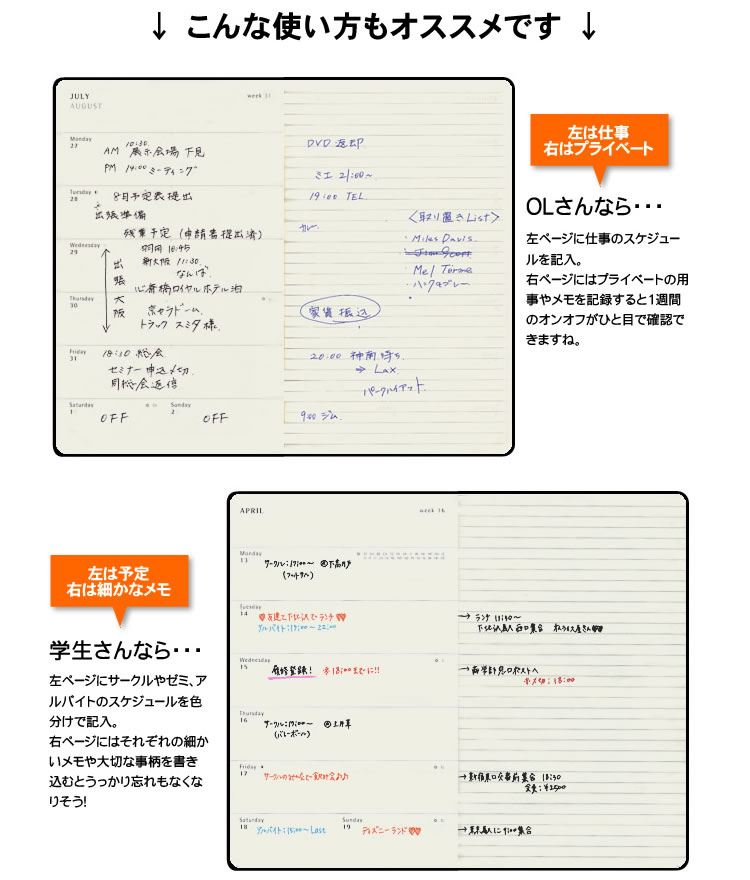 ↓ こんな使い方もオススメです ↓
JULY
AUGUST
week 31
Monday
27
AM 10:30 展示会場 下見
PM 14:00 ミーティング
DVD 返却
ミエ 21:00~
Tuesday
28
8月予定表提出
出張準備
残業予定 (申請書提出済)
19:00 TEL
Wednesday
29
羽田 10:45
新大阪 11:30
なんば
心斎橋ロイヤルホテル泊
出張 大阪
カレー
〈取り置きList〉
・Miles Davis
・Mel Torme
Thursday
30
京セラドーム
トラック スミタ様
家賃振込
Friday
31
18:30 総会
セミナー申込〆切
同総会返信
20:00 神南待ち
⇒ Lax
パークハイアット
Saturday
1
OFF
Sunday
2
OFF
9:00 ジム
左は仕事
右はプライベート
OLさんなら・・・
左ページに仕事のスケジュー
ルを記入。
右ページにはプライベートの用
事やメモを記録すると1週間
のオンオフがひと目で確認で
きますね。
左は予定
右は細かなメモ
学生さんなら・・・
左ページにサークルやゼミ、ア
ルバイトのスケジュールを色
分けで記入。
右ページにはそれぞれの細か
いメモや大切な事柄を書き
込むとうっかり忘れもなくな
りそう!
APRIL
week 16
Monday
13
サークル:17:00~ @下高井戸
(フットサル)
Tuesday
14
♡友達と下北沢でランチ♡♡
アルバイト:17:00~22:00
→ ランチ 11:30~
下北沢駅 西口集合
Wednesday
15
履修登録! ※18:00までに!!
→ 商学部窓口ポストへ
※〆切:18:00
Thursday
16
サークル:17:00~ @土井草
(バレーボール)
Friday
17
サークルのみんなで飲み会♪♪
→ 新宿東口交番前集合 18:30
会費:¥2500
Saturday
18
アルバイト:15:00~Last
Sunday
19
ディズニーランド♡♡
→ 東京駅に9:00集合